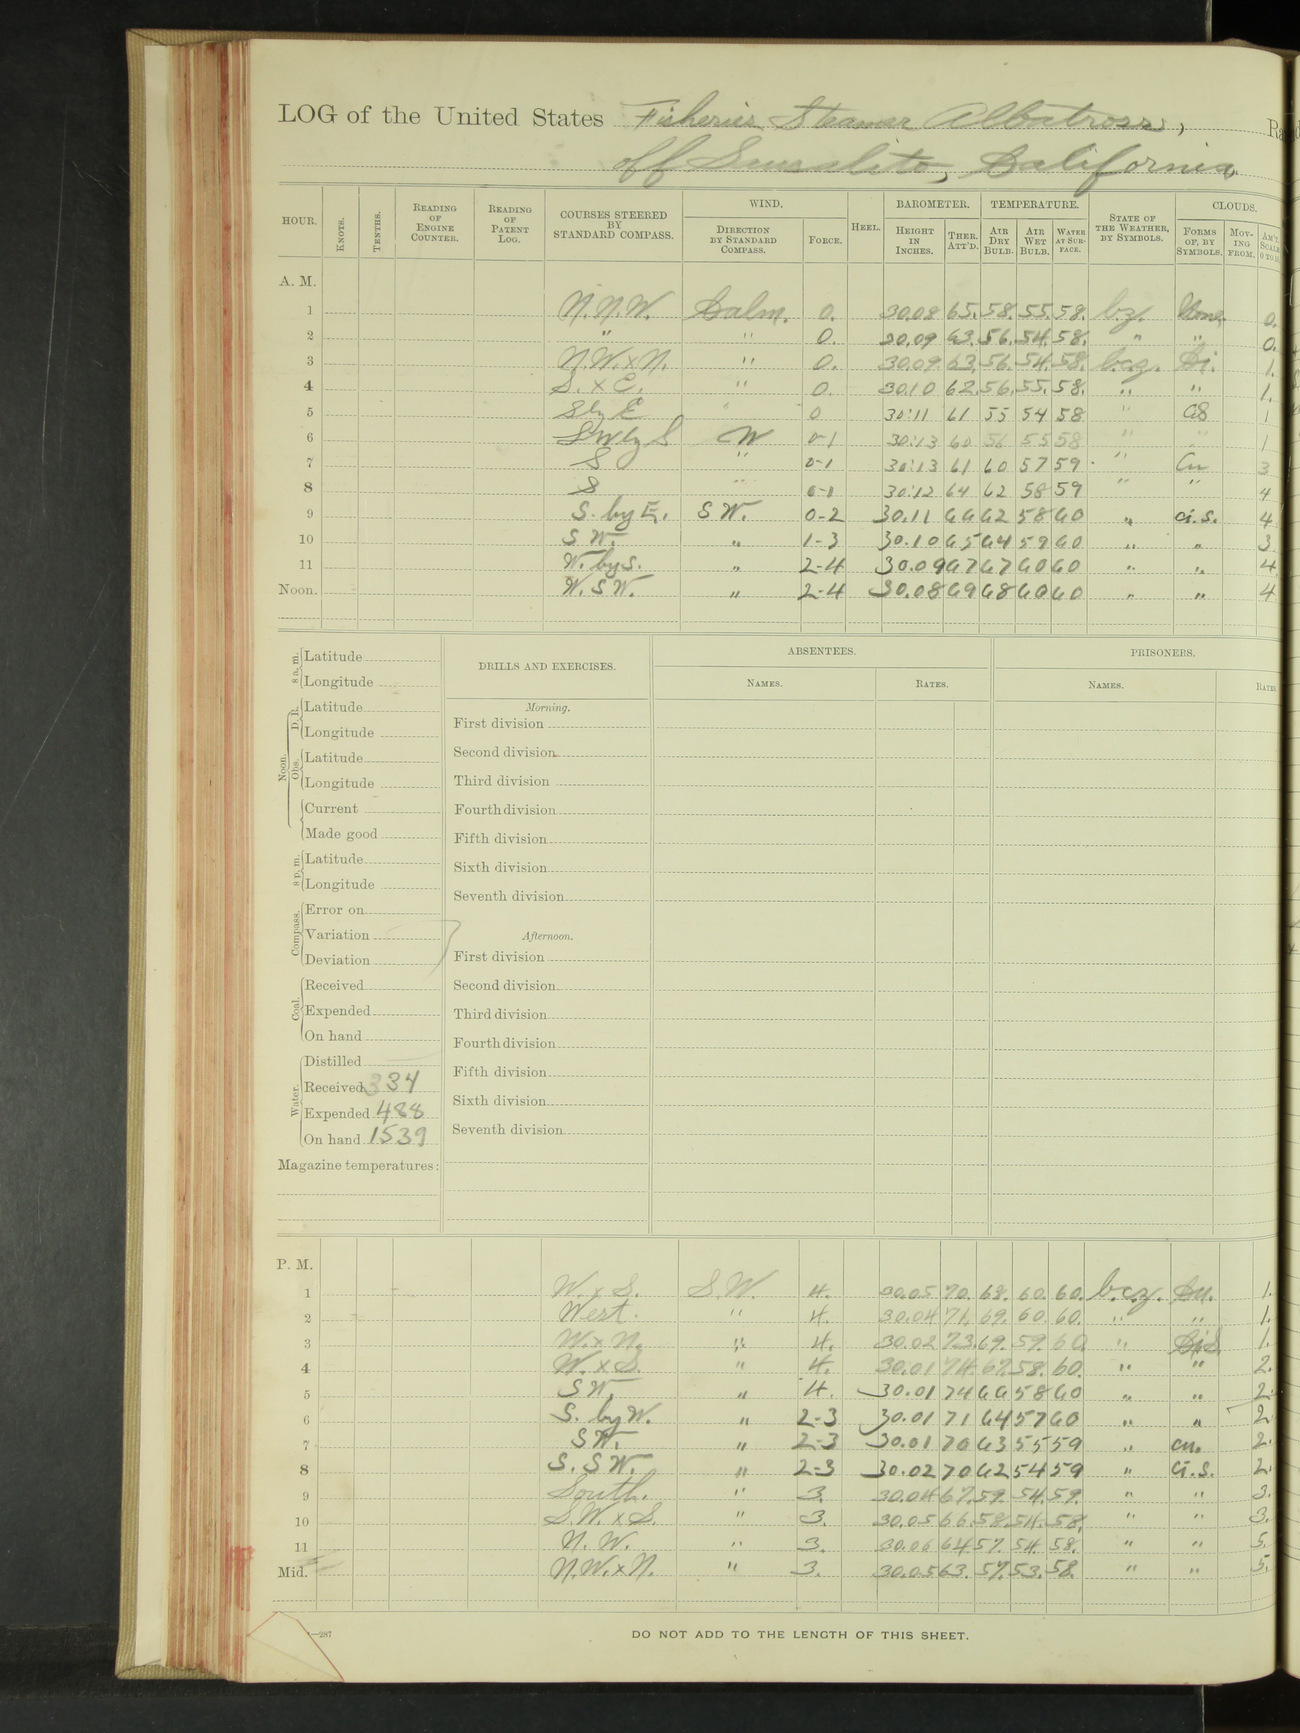 LOG of the United States Fisheries Steamer Albatross, Ra
off Sausalito, California,
HOUR. KNOTS. TENTHS. READING OF ENGINE COUNTER. READING OF PATENT LOG. COURSES STEERED BY STANDARD COMPASS. WIND. DIRECTION BY STANDARD COMPASS. FORCE. HEEL. BAROMETER. HEIGHT IN INCHES. THER. ATT'D. TEMPERATURE. AIR DRY BULB. AIR WET BULB. WATER AT SURFACE. STATE OF THE WEATHER, BY SYMBOLS. CLOUDS. FORMS OF, BY SYMBOLS. MOVING FROM. AM'T. SCALE 0 TO 10
A. M.
1 N.N.W. Calm. 0. 30.08 65. 58. 55. 58. b.z. None. 0.
2 " " 0. 30.09 63. 56. 54. 58. " " 0.
3 N.W.xN. " 0. 30.09 63. 56. 54. 58. b.c.z. Ci. 1.
4 S. x E. " 0. 30.10 62. 56. 55. 58. " " 1.
5 S by E " 0 30.11 61 55 54 58 " CS 1
6 SW by S W 0-1 30.13 60 56 55 58 " " 1
7 S " 0-1 30.13 61 60 57 59 " Cu 3
8 S " 0-1 30.12 64 62 58 59 " " 4
9 S. by E. S W. 0-2 30.11 66 62 58 60 " ci.s. 4
10 S W. " 1-3 30.10 65 64 59 60 " " 3
11 W. by S. " 2-4 30.09 67 67 60 60 " " 4
Noon. W. S W. " 2-4 30.08 69 68 60 60 " " 4
8 a. m. Latitude
Longitude
Noon. D. R. Latitude
Longitude
Obs. Latitude
Longitude
Current
Made good
8 p. m. Latitude
Longitude
Compass. Error on
Variation
Deviation
Coal. Received
Expended
On hand
Water. Distilled
Received 334
Expended 488
On hand 1539
Magazine temperatures:
DRILLS AND EXERCISES.
Morning.
First division
Second division
Third division
Fourth division
Fifth division
Sixth division
Seventh division
Afternoon.
First division
Second division
Third division
Fourth division
Fifth division
Sixth division
Seventh division
ABSENTEES.
NAMES. RATES.
PRISONERS.
NAMES. RATES
P. M.
1 W. x S. S.W. 4. 30.05 70. 68. 60. 60. b.c.z. Cu. 1.
2 West. " 4. 30.04 71. 69. 60. 60. " " 1.
3 W.xN. " 4. 30.02 73. 69. 59. 60. " Ci.S. 1.
4 W.xS. " 4. 30.01 74. 67. 58. 60. " " 2.
5 S W. " 4. 30.01 74 66 58 60 " " 2.
6 S. by W. " 2-3 30.01 71 64 57 60 " " 2.
7 S W. " 2-3 30.01 70 63 55 59 " cu. 2.
8 S. S W. " 2-3 30.02 70 62 54 59 " ci.s. 2.
9 South. " 3. 30.04 67. 59. 54. 59. " " 3.
10 S.W. x S. " 3. 30.05 66. 58. 54. 58. " " 3.
11 N. W. " 3. 30.06 64 57. 54. 58. " " 5.
Mid. N.W.xN. " 3. 30.05 63. 57. 53. 58. " " 5.
—287
DO NOT ADD TO THE LENGTH OF THIS SHEET.